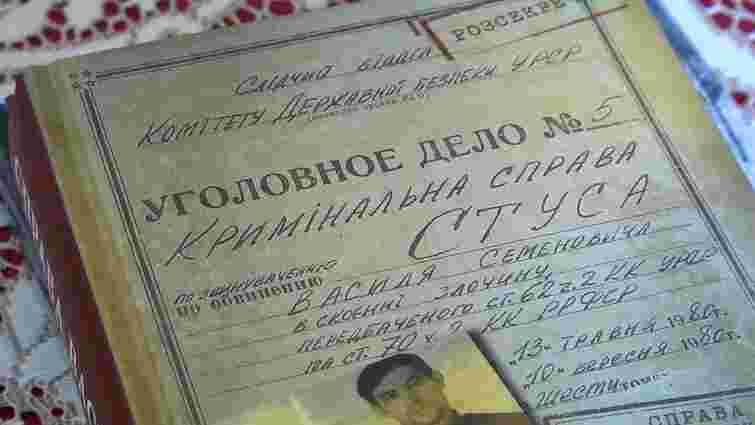 РОЗСЕКРЕ
Слідчий відділ
Комітету Державної безпеки УРСР
УГОЛОВНОЕ ДЕЛО № 5
Кримінальна справа
СТУСА
по звинуваченню
по обвинению
Василя Семеновича
в скоєнні злочину,
передбаченого ст. 62 ч. 2 КК УРСР
та ст. 70 ч. 2 КК РРФСР
"13" травня 1980 г.
"10" вересня 1980 г.
шести
СПРАВА